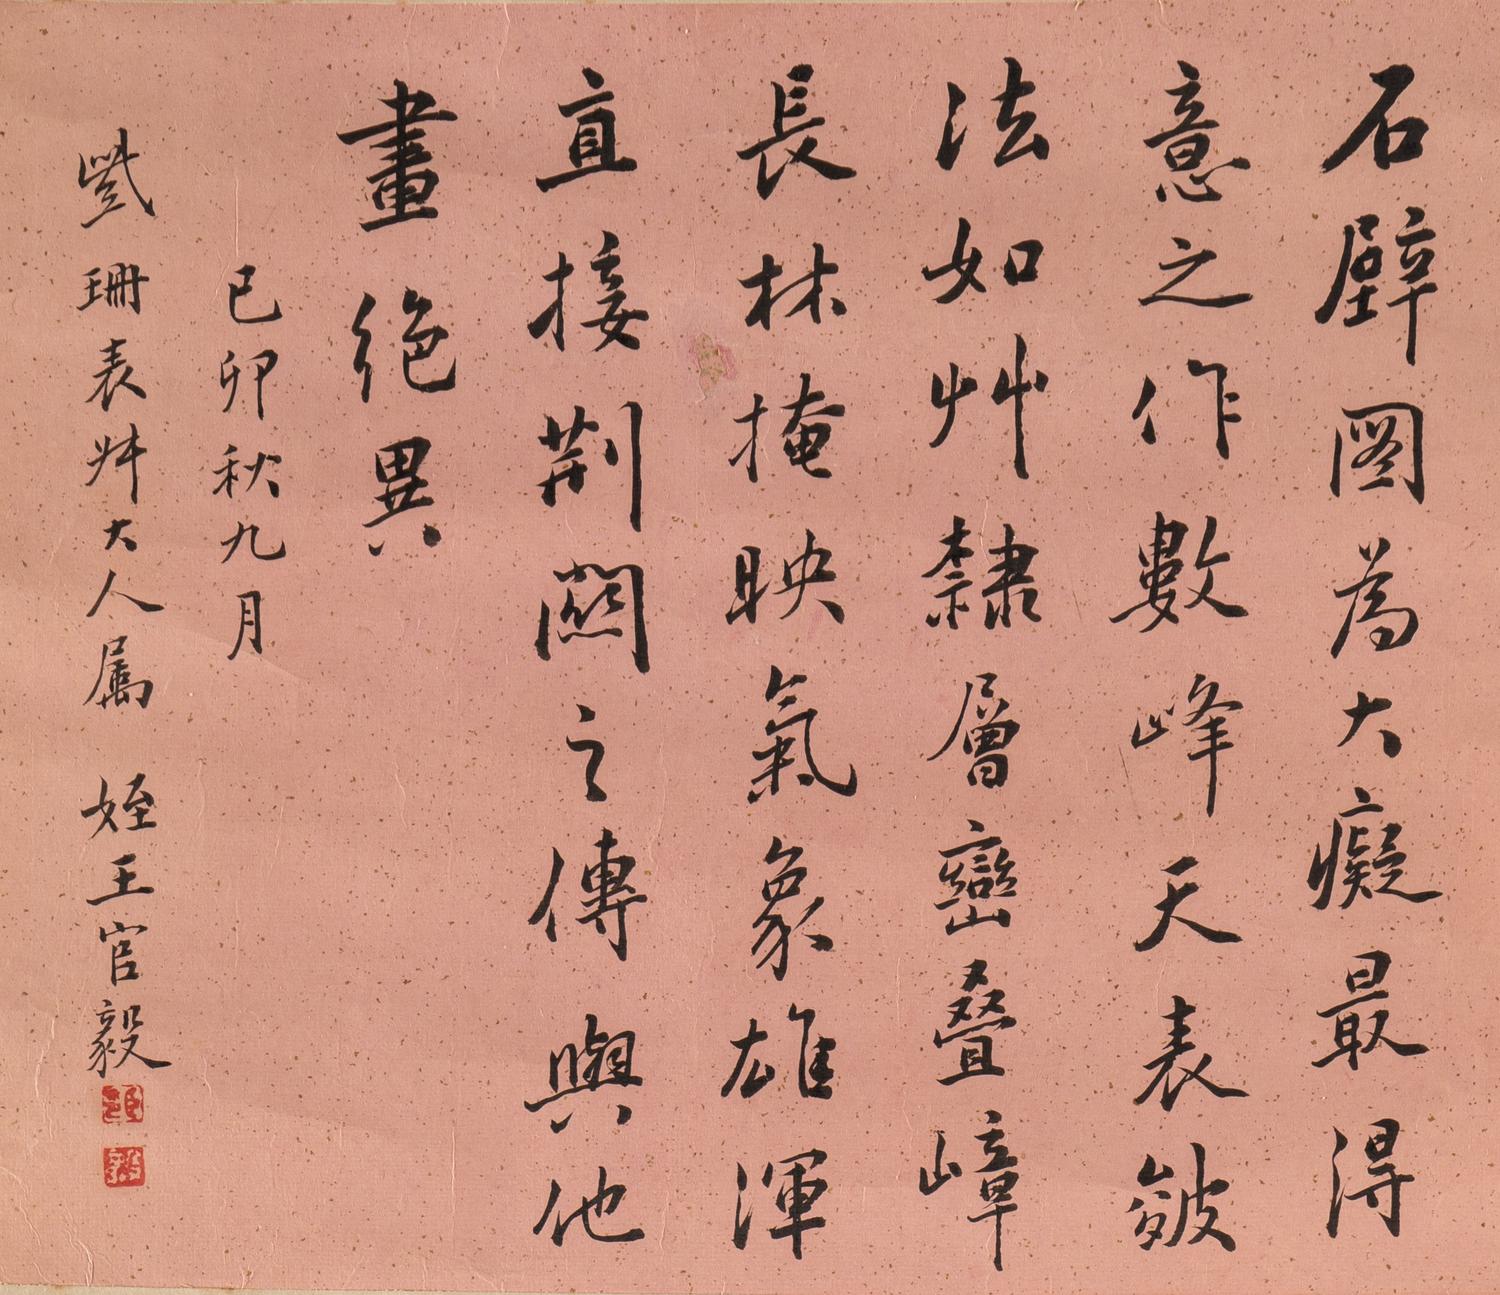 石壁圖為大癡最得
意之作數峰天表皴
法如艸隸層巒疊嶂
長林掩映氣象雄渾
直接荆關之傳與他
畫絕異
己卯秋九月
紫珊表叔大人属 姪王官毅